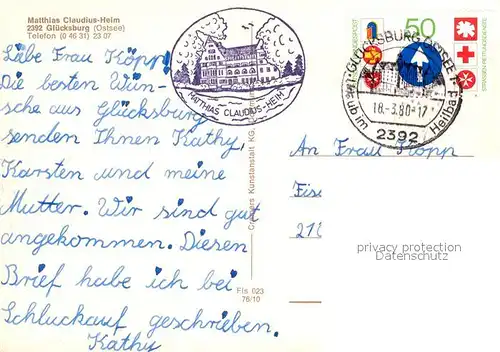 Matthias Claudius-Heim
2392 Glücksburg (Ostsee)
Telefon (0 46 31) 23 07
MATTHIAS CLAUDIUS-HEIM
Läbe Frau Köpp!
Die besten Wün-
sche aus Glücksburg
senden Ihnen Kathy,
Karsten und meine
Mutter. Wir sind gut
angekommen. Diesen
Brief habe ich bei
Schluckauf geschrieben.
Kathy
Cramers Kunstanstalt KG,
Fls 023
76/10
50
STRASSEN-RETTUNGSDIENSTE
BUNDESPOST
GLÜCKSBURG, OSTSEE
18.-3.80-17
2392
Urlaub im Heilbad
An Frau Köpp
privacy protection
Datenschutz